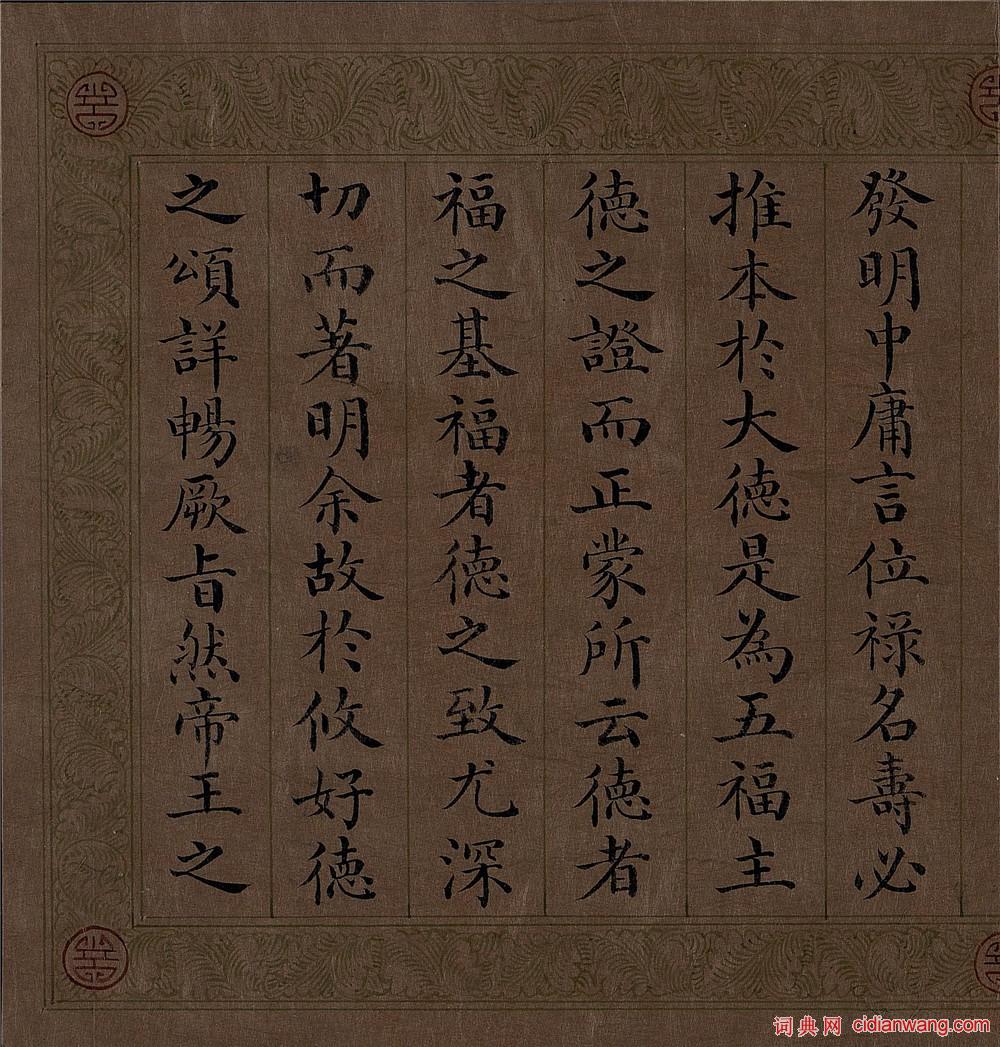 發明中庸言位祿名壽必
推本於大徳是為五福主
徳之證而正蒙所云徳者
福之基福者徳之致尤深
切而著明余故於攸好徳
之頌詳暢厥旨然帝王之
词典网 cidianwang.com